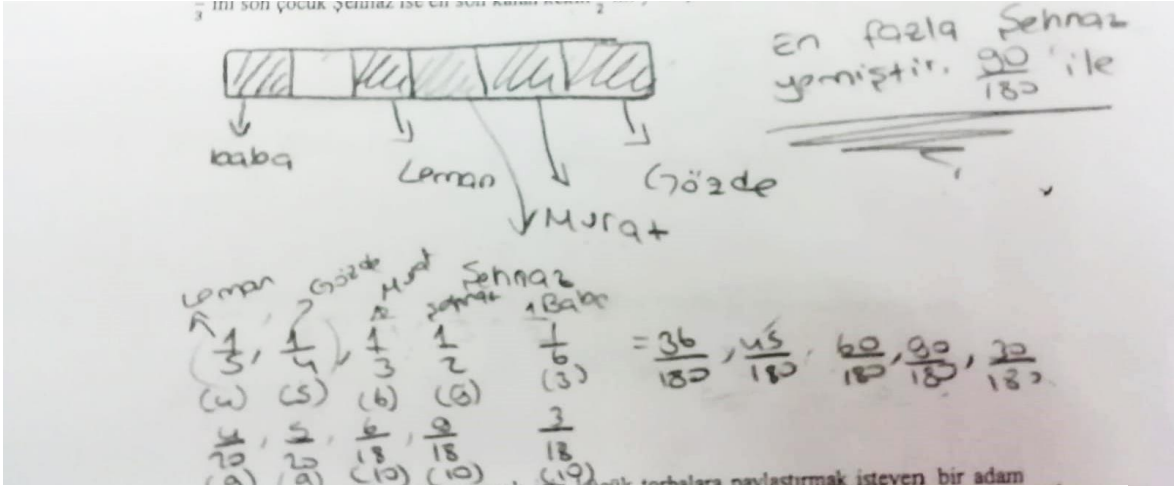 3 ini son çocuk Şehnaz ise en son kalan kekin 2
En fazla Şehnaz
yemiştir. 90/180 ile
baba
Leman
Gözde
Murat
Leman Gözde Murat Şehnaz
Baba
1/5, 1/4, 1/3 1/2 1/6 = 36/180, 45/180, 60/180, 90/180, 30/180
(4) (5) (6) (3)
4/20, 5/20, 6/18, 9/18 3/18
(9) (9) (10) (10) (10)
torbalara paylaştırmak isteyen bir adam